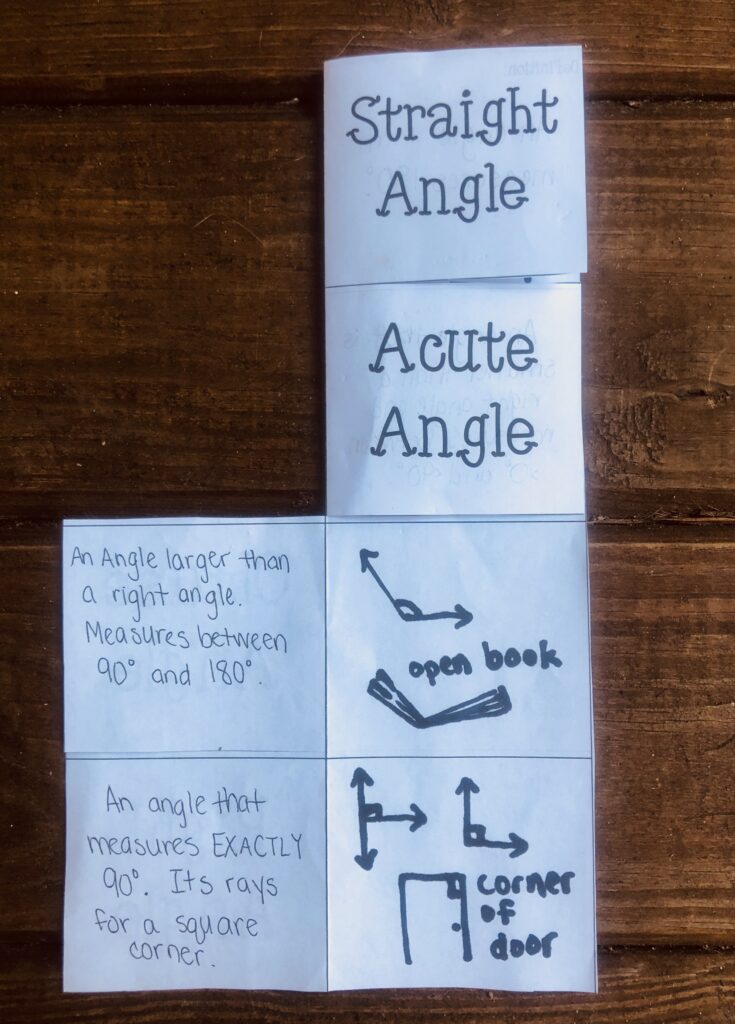 Straight
Angle
Acute
Angle
An Angle larger than
a right angle.
Measures between
90° and 180°.
open book
An angle that
measures EXACTLY
90°. Its rays
for a square
corner.
corner
of
door